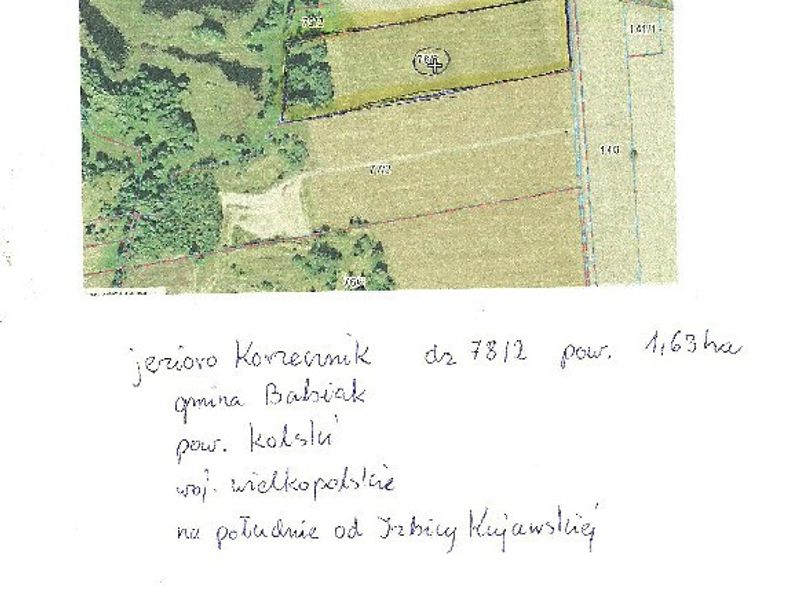 78/2
141/1
140
77/2
jezioro Korzecznik dz 78/2 pow. 1,63 ha
gmina Babiak
pow. kolski
woj. wielkopolskie
na południe od Izbicy Kujawskiej